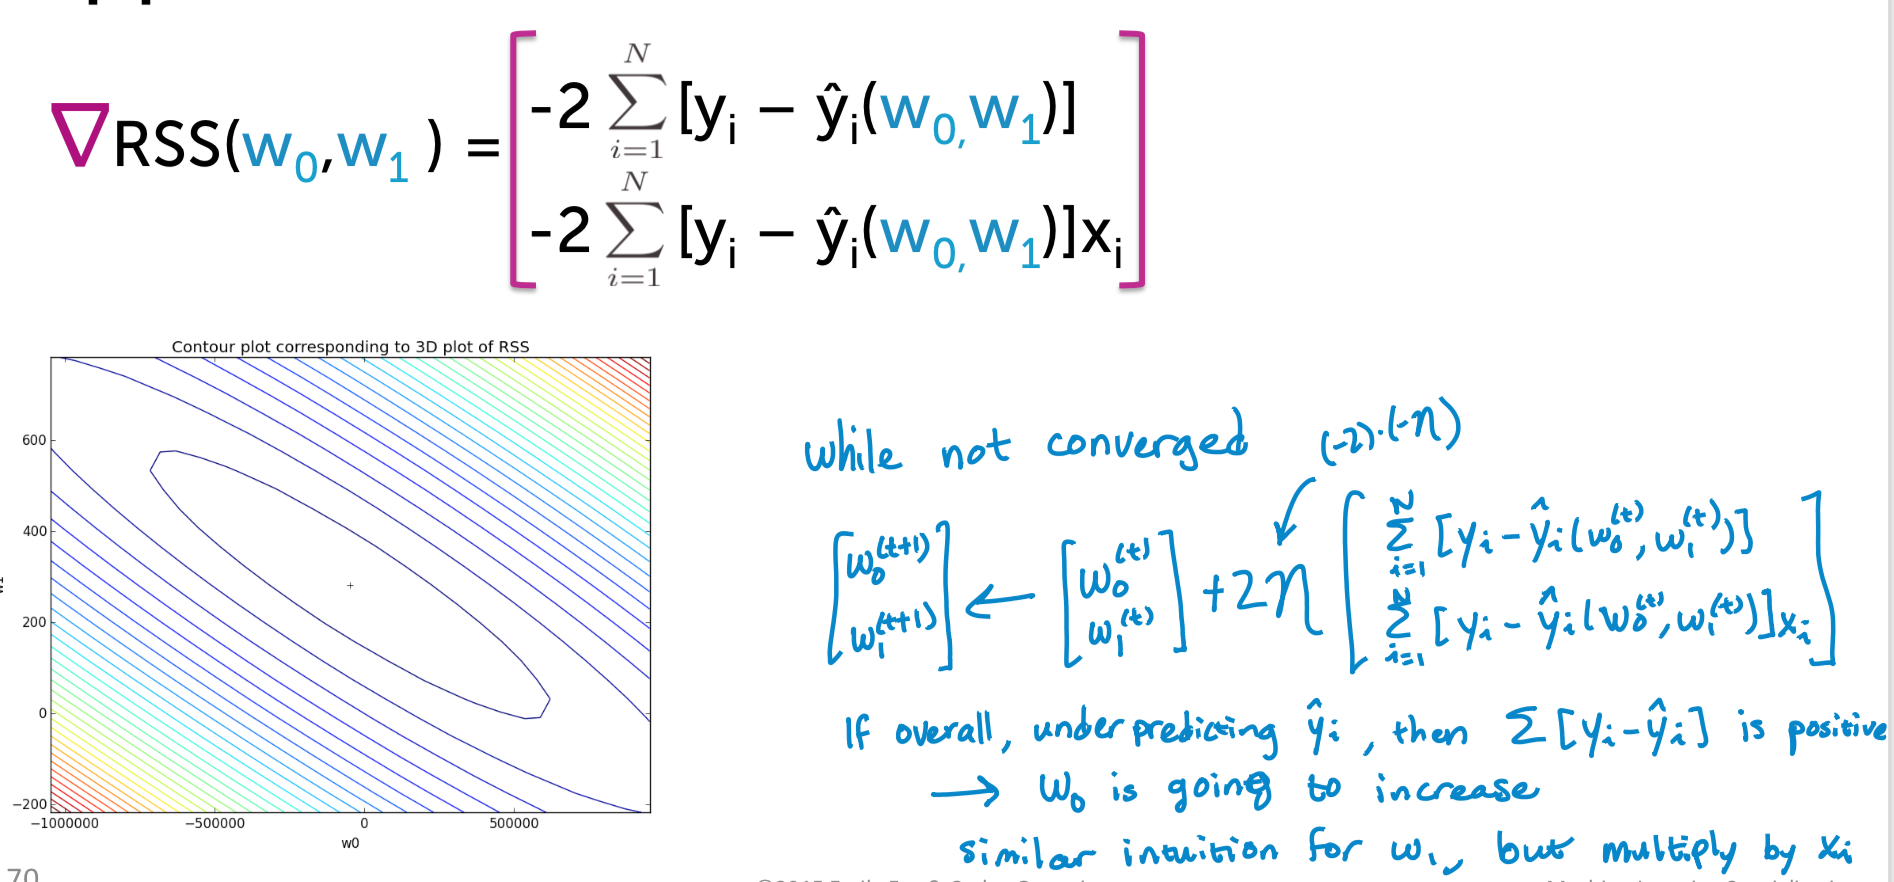 ∇RSS(w₀,w₁) = [ -2 ∑ᵢ₌₁ᴺ [yᵢ – ŷᵢ(w₀,w₁)]
-2 ∑ᵢ₌₁ᴺ [yᵢ – ŷᵢ(w₀,w₁)]xᵢ ]
Contour plot corresponding to 3D plot of RSS
600
400
200
0
−200
−1000000 −500000 0 500000
w0
while not converged (-2)·(-η)
[ w₀⁽ᵗ⁺¹⁾ w₁⁽ᵗ⁺¹⁾ ] ← [ w₀⁽ᵗ⁾ w₁⁽ᵗ⁾ ] +2η [ ∑ᵢ₌₁ᴺ [yᵢ-ŷᵢ(w₀⁽ᵗ⁾,w₁⁽ᵗ⁾)]
∑ᵢ₌₁ᴺ [yᵢ-ŷᵢ(w₀⁽ᵗ⁾,w₁⁽ᵗ⁾)]xᵢ ]
If overall, underpredicting ŷᵢ, then Σ[yᵢ-ŷᵢ] is positive
→ w₀ is going to increase
similar intuition for w₁, but multiply by xᵢ
70